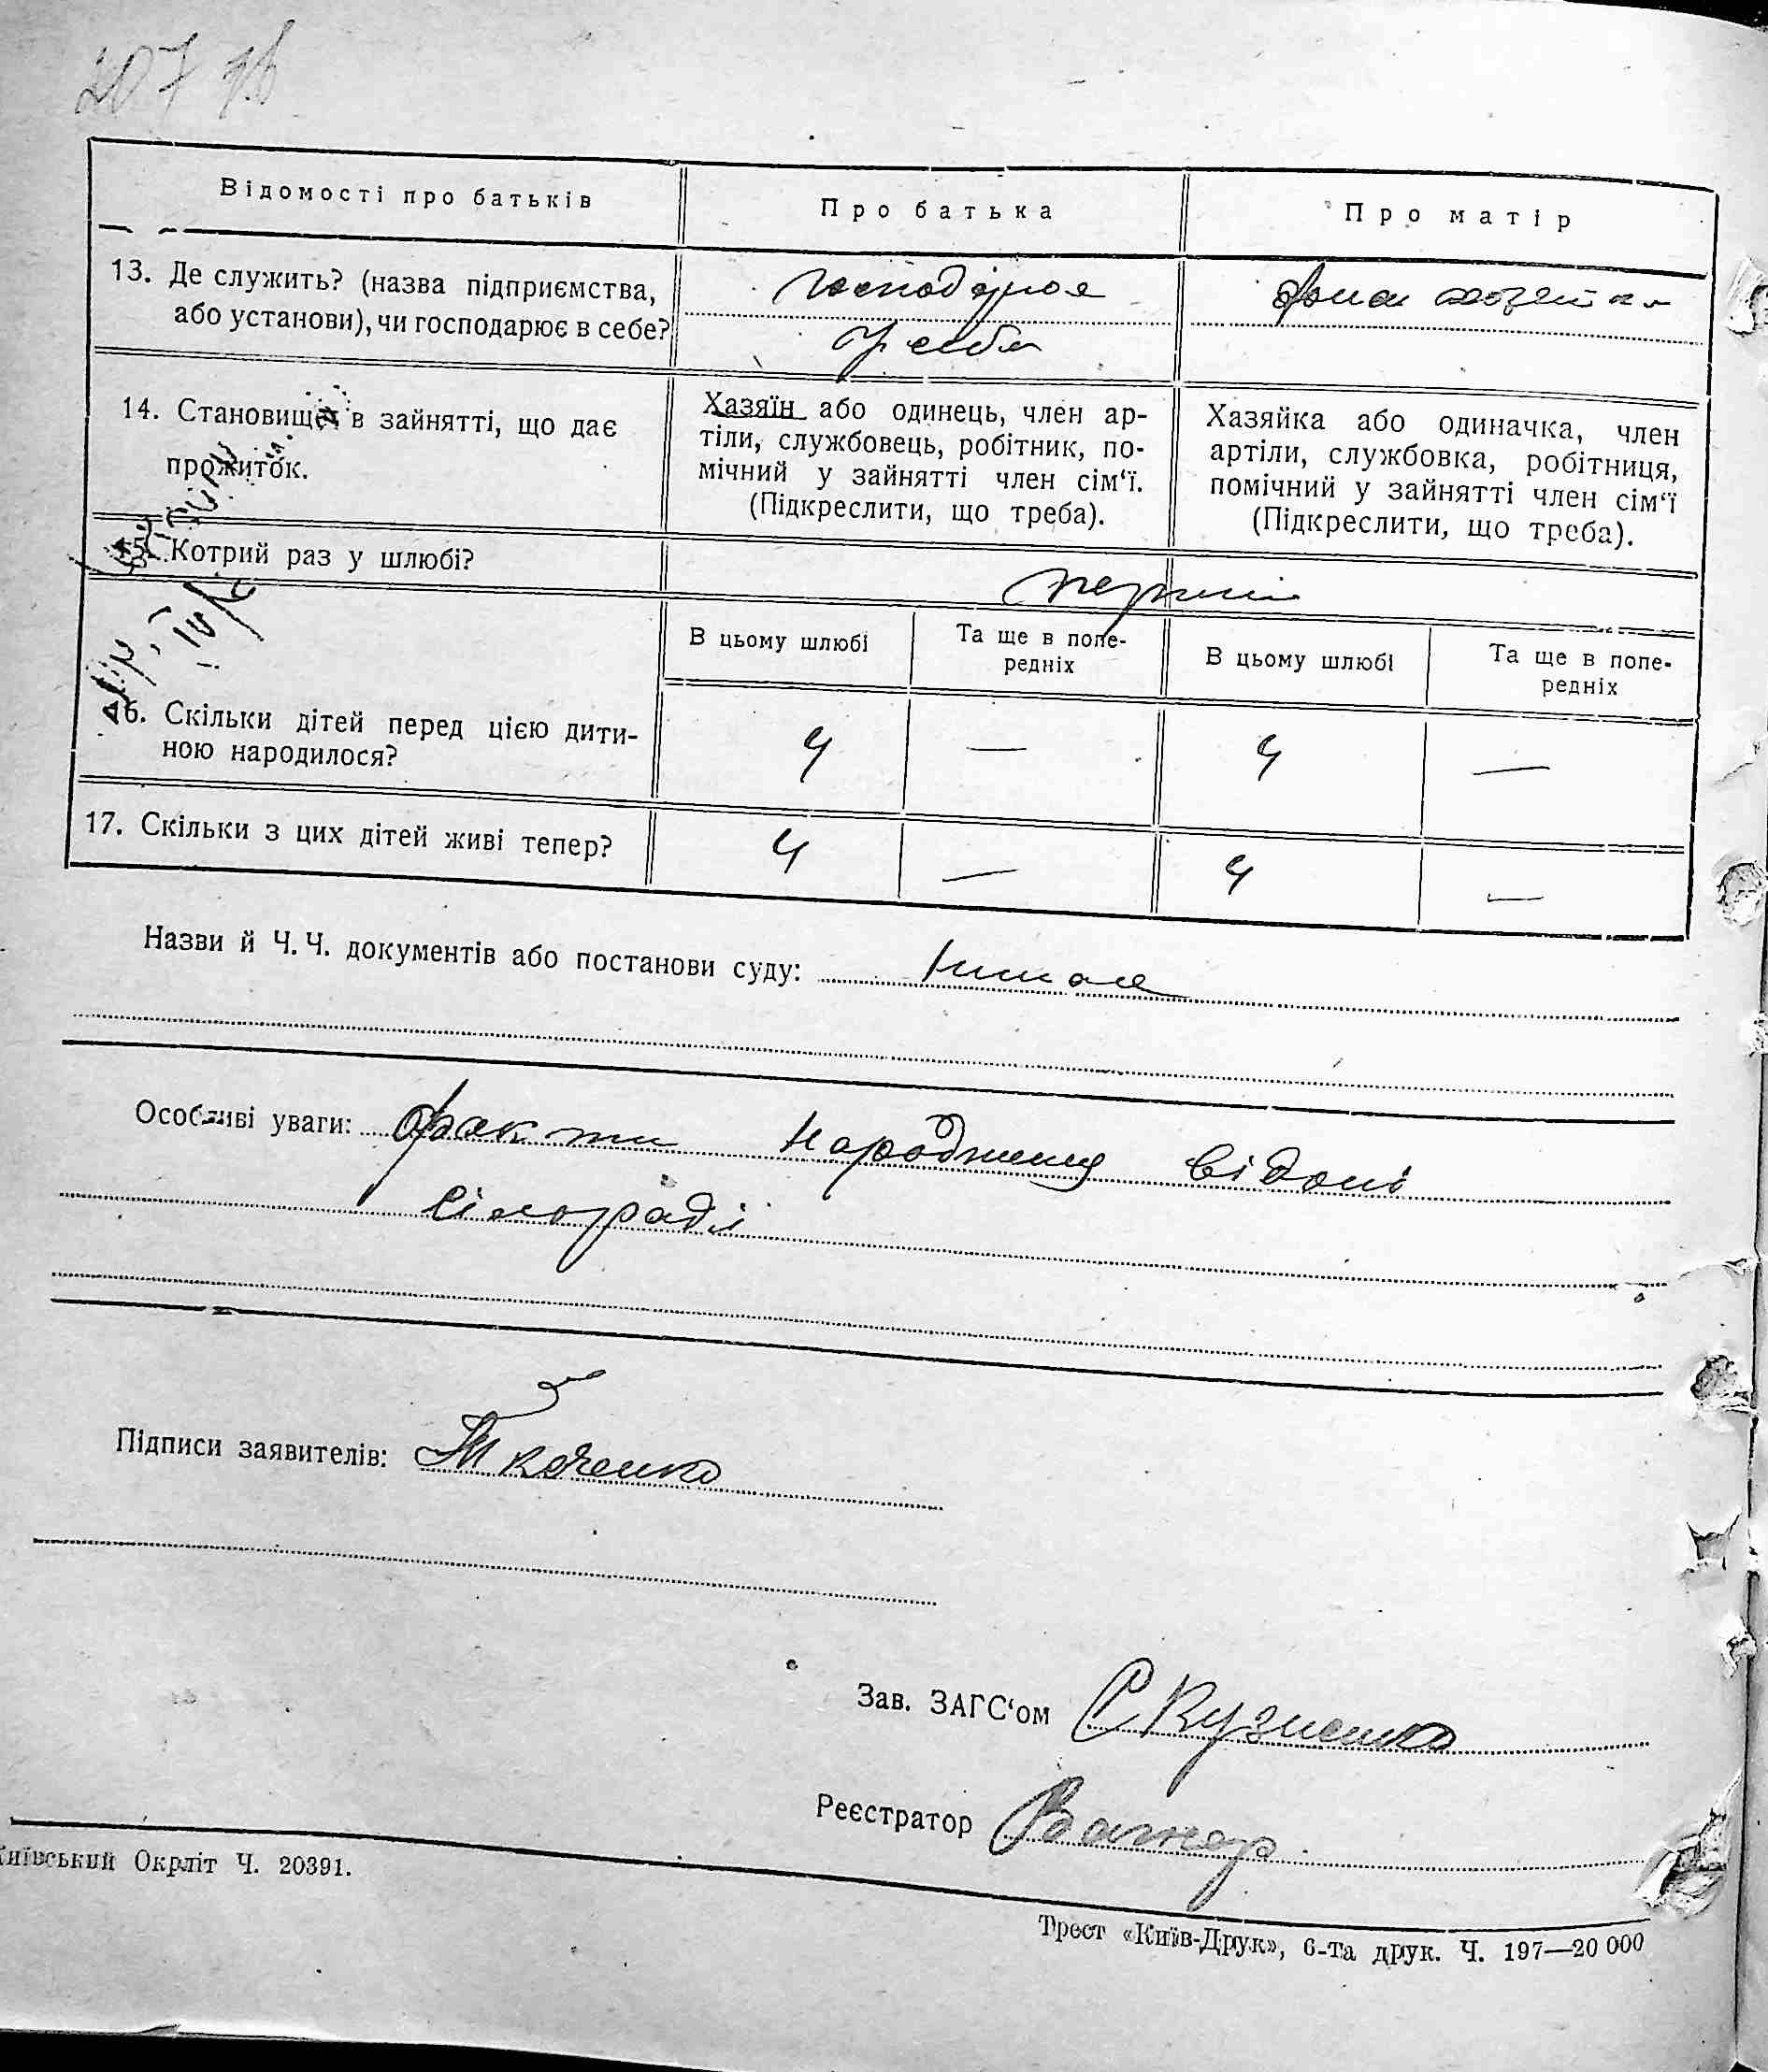 207 зв
Відомості про батьків
Про батька
Про матір
13. Де служить? (назва підприємства,
або установи), чи господарює в себе?
господарює
у себе
14. Становище в зайнятті, що дає
прожиток.
Хазяїн або одинець, член ар-
тіли, службовець, робітник, по-
мічний у зайнятті член сім‘ї.
(Підкреслити, що треба).
Хазяйка або одиначка, член
артіли, службовка, робітниця,
помічний у зайнятті член сім‘ї
(Підкреслити, що треба).
15. Котрий раз у шлюбі?
перший
В цьому шлюбі
Та ще в попе-
редніх
В цьому шлюбі
Та ще в попе-
редніх
16. Скільки дітей перед цією дити-
ною народилося?
4 — 4 —
17. Скільки з цих дітей живі тепер?
4 — 4 —
Назви й Ч. Ч. документів або постанови суду:
Особливі уваги: факти народження відомі
сільраді
Підписи заявителів: Ткаченко
Зав. ЗАГС‘ом С Кузненко
Реєстратор
Київський Окрліт Ч. 20391.
Трест «Київ-Друк», 6-та друк. Ч. 197—20 000